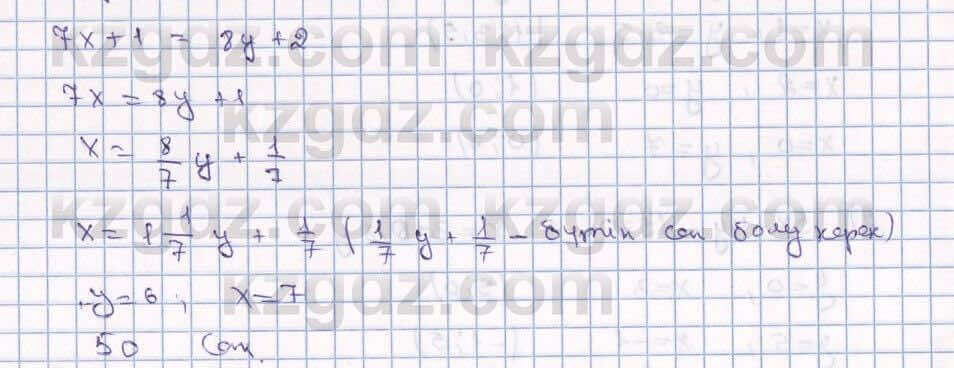 7x + 1 = 8y + 2
7x = 8y + 1
x = 8/7 y + 1/7
x = 1 1/7 y + 1/7 ( 1/7 y + 1/7 - бүтін сан болу керек)
y = 6 ; x = 7
50 сан.
kzgdz.com kzgdz.com
kzgdz.com
kzgdz.com kzgdz.com
kzgdz.com